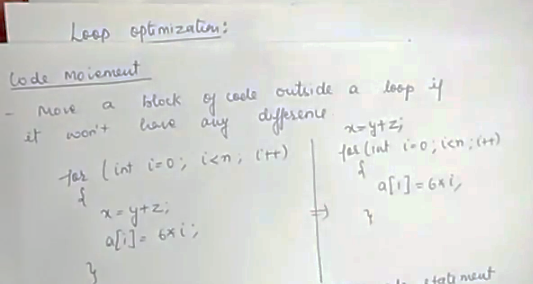 Loop optimization:
Code Movement
- Move a block of code outside a loop if
it won't have any difference
for (int i=0; i<n; i++)
{
x=y+z;
a[i]= 6*i;
}
⇒
x=y+z;
for (int i=0; i<n; i++)
{
a[i]=6*i;
}
statement